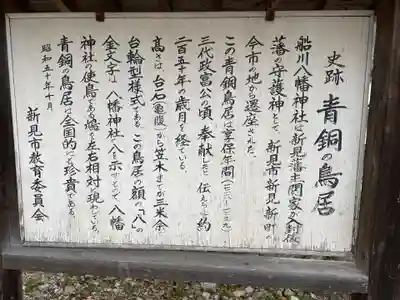 史跡 青銅の鳥居
船川八幡神社は新見藩主関家が封後
藩の守護神として、新見市新見新町の
今市の地から遷座された。
この青銅鳥居は享保年間
三代政富公の頃奉献したと伝えられ約
二百五十年の歳月を経ている。
高さは、台石(亀腹)から笠木まで三米余
台輪型様式である。この鳥居の額の「八」の
金文字は、八幡神社の八を示すもので、八幡
神社の使鳥である鳩を左右相対で現わしている。
青銅の鳥居は全国的にも珍貴である。
昭和五十年十月
新見市教育委員会